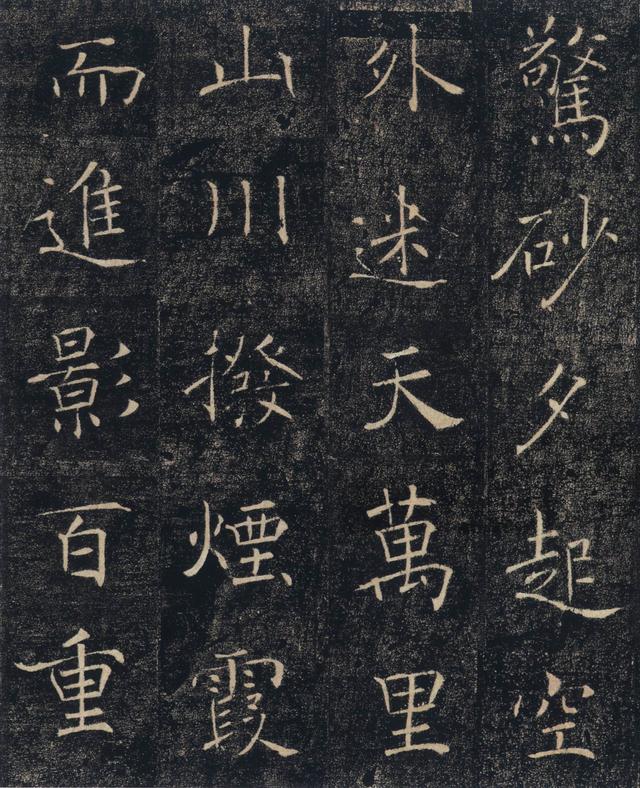 驚砂夕起空
外迷天萬里
山川撥煙霞
而進影百重